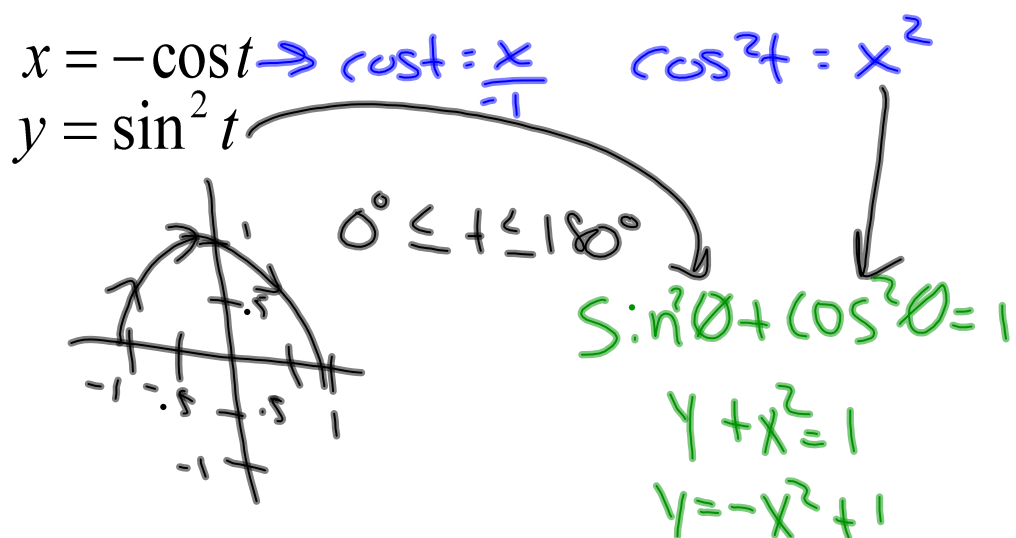 x = −cost → cost = x/-1 cos²t = x²
y = sin² t
0° ≤ t ≤ 180°
1
.5
sin²θ + cos²θ = 1
-1 -.5 .5 1
-1
y + x² = 1
y = -x² + 1